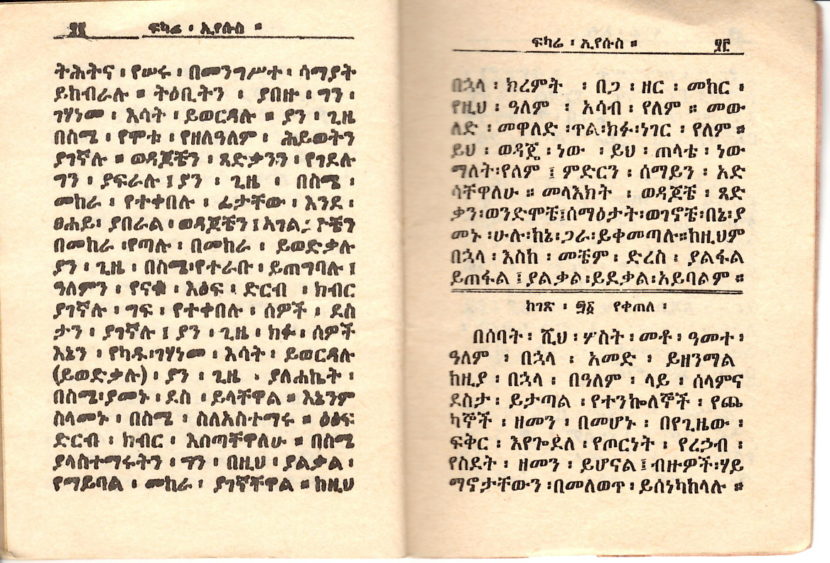 ፶፪ ፍካሬ ፡ ኢየሱስ ።
ትሕትና ፡ የሠሩ ፡ በመንግሥተ ፡ ሳማያት
ይከብራሉ ። ትዕቢትን ፡ ያበዙ ፡ ግን ፡
ገሃነመ ፡ እሳት ፡ ይወርዳሉ ። ያን ፡ ጊዜ
በስሜ ፡ የሞቱ ፡ የዘለዓለም ፡ ሕይወትን
ያገኛሉ ። ወዳጆቼን ፡ ጻድቃንን ፡ የገደሉ
ግን ፡ ያፍራሉ ፤ ያን ፡ ጊዜ ፡ በስሜ ፡
መከራ ፡ የተቀበሉ ፡ ፊታቸው ፡ እንደ ፡
ፀሐይ፡ ያበራል ፡ ወዳጆቼን ፤ አገል ኦቼን
በመከራ ፡የጣሉ ፡ በመከራ ፡ ይወድቃሉ
ያን ፡ ጊዜ ፡ በስሜ፡የተራቡ ፡ይጠግባሉ ፤
ዓለምን ፡ የናቁ ፡ እፅፍ ፡ ድርብ ፡ ክብር
ያገኛሉ ፡ ግፍ ፡ የተቀበሉ ፡ ሰዎች ፡ ደስ
ታን ፡ ያገኛሉ ፤ ያን ፡ ጊዜ ፡ ክፉ ፡ ሰዎች
እኔን ፡ የካዱ፡ገሃነመ ፡ እሳት ፡ ይወርዳሉ
(ይወድቃሉ) ፡ ያን ፡ ጊዜ ፡ ያለሐኬት ፡
በስሜ፡ያመኑ ፡ ደስ ፡ ይላቸዋል ። እኔንም
ስላመኑ ፡ በስሜ ፡ ስለአስተማሩ ። ዕፅፍ
ድርብ ፡ ክብር ፡ እሰጣቸዋለሁ ። በስሜ
ያላስተማሩትን ፡ ግን ፡ በዚህ ፡ ያልቃል ፡
የማይባል ፡ መከራ ፡ ያገኛቸዋል ። ከዚህ
ፍካሬ ፡ ኢየሱስ ። ፶፫
በኋላ ፡ ክረምት ፡ በጋ ፡ ዘር ፡ መከር ፡
የዚህ ፡ ዓለም ፡ አሳብ ፡ የለም ። መው
ለድ ፡ መዋለድ ፡ጥል፡ክፉ፡ነገር ፡ የለም።
ይህ ፡ ወዳጄ ፡ ነው ፡ ይህ ፡ ጠላቴ ፡ ነው
ማለት፡የለም ፤ ምድርን ፡ ሰማይን ፡ አድ
ሳቸዋለሁ ። መላእክት ፡ ወዳጆቼ ፡ ጻድ
ቃን፡ወንድሞቼ፤ሰማዕታት፡ወገኖቼ፡በኔ፡ያ
መኑ ፡ሁሉ፡ከኔ፡ጋራ፡ይቀመጣሉ።ከዚህም
በኋላ ፡ እስከ ፡ መቼም ፡ ድረስ ፡ ያልፋል
ይጠፋል ፤ ያልቃል፡ይደቃል፡አይባልም ።
ከገጽ ፡ ፵፩ የቀጠለ ፡
በሰባት ፡ ሺህ ፡ ሦስት ፡ መቶ ፡ ዓመተ ፡
ዓለም ፡ በኋላ ፡ አመድ ፡ ይዘንማል
ከዚያ ፡ በኋላ ፡ በዓለም ፡ ላይ ፡ ሰላምና
ደስታ ፡ ይታጣል ፡ የተንኰለኞች ፡ የጨ
ካኞች ፡ ዘመን ፡ በመሆኑ ፡ በየጊዜው ፡
ፍቅር ፡ እየጐደለ ፡ የጦርነት ፡ የረኃብ ፡
የስደት ፡ ዘመን ፡ ይሆናል ፤ ብዙዎች፡ሃይ
ማኖታቸውን ፡በመለወጥ ፡ ይሰነካከላሉ ።